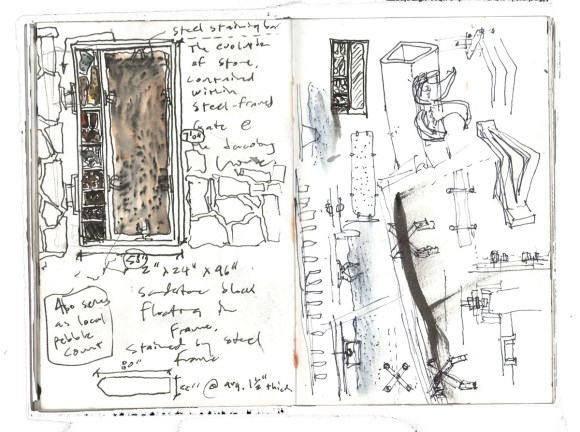 Steel staining bar
The evolution
of stone,
contained
within
steel-framed
gate @
58"
2" x 24" x 96"
sandstone block
floating in
frame.
stained by steel
frame
Also serves
as local
pebble
count
80"
@ avg. 1½" thick